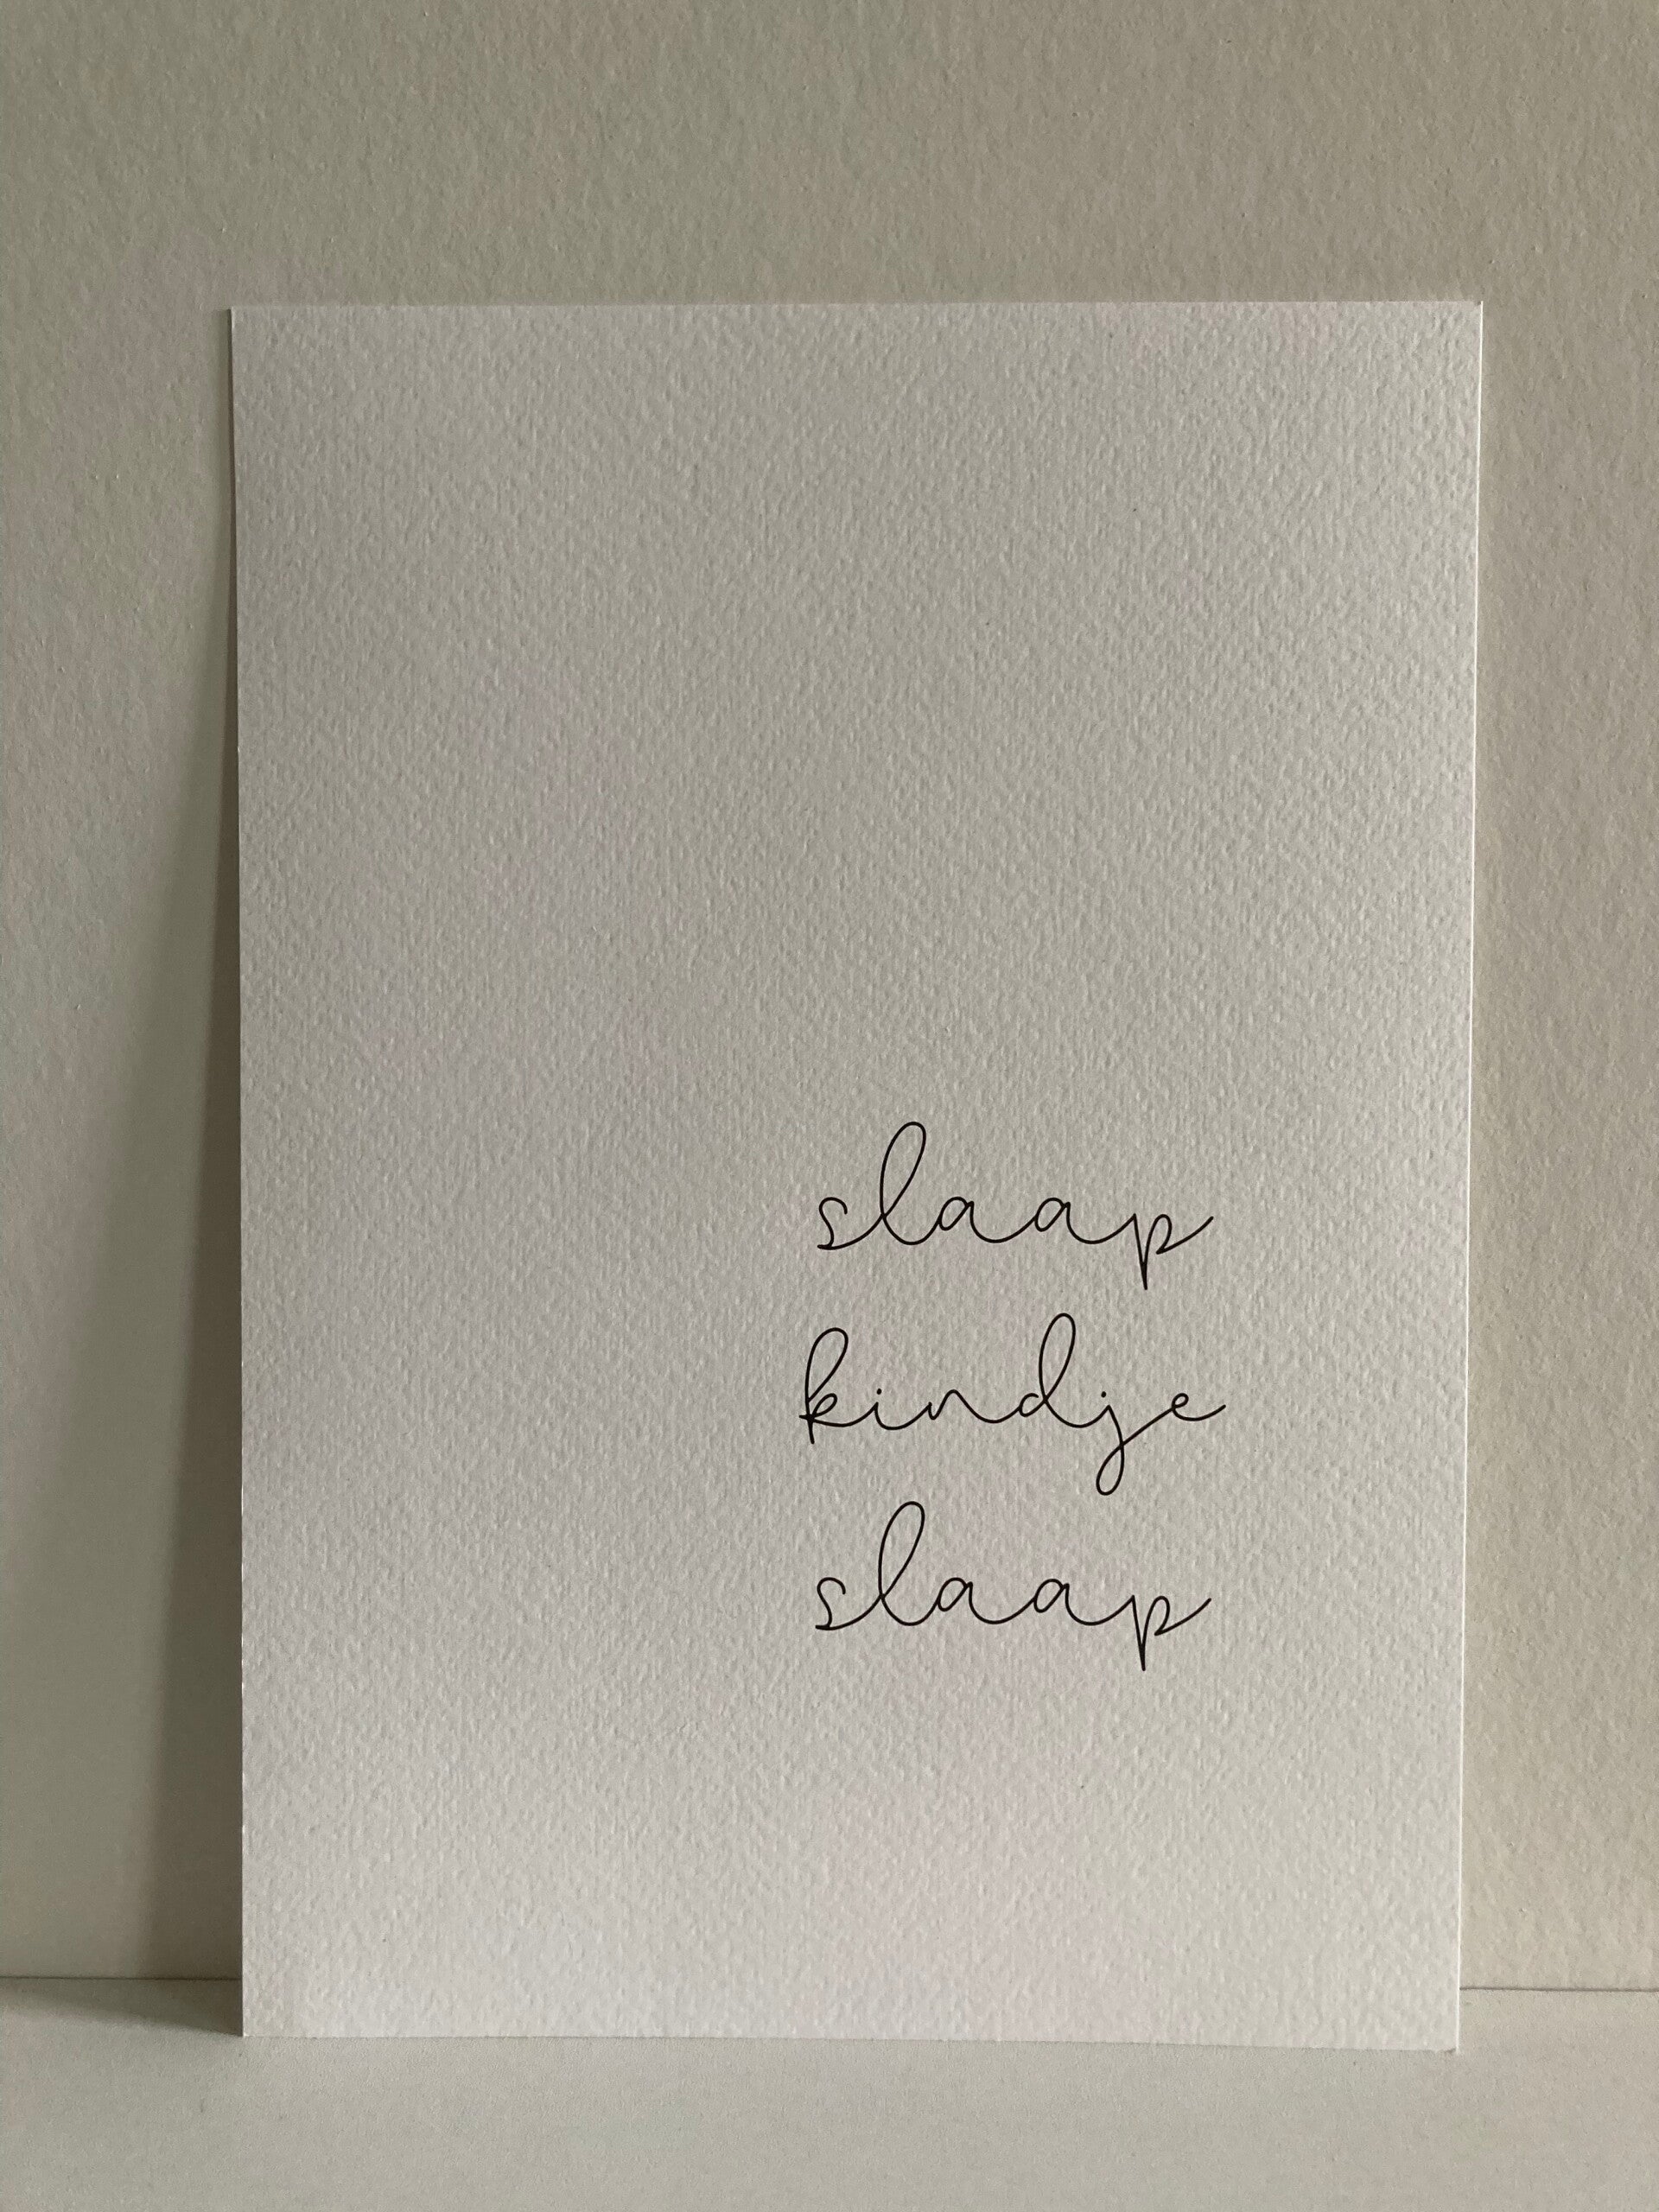 slaap
kindje
slaap